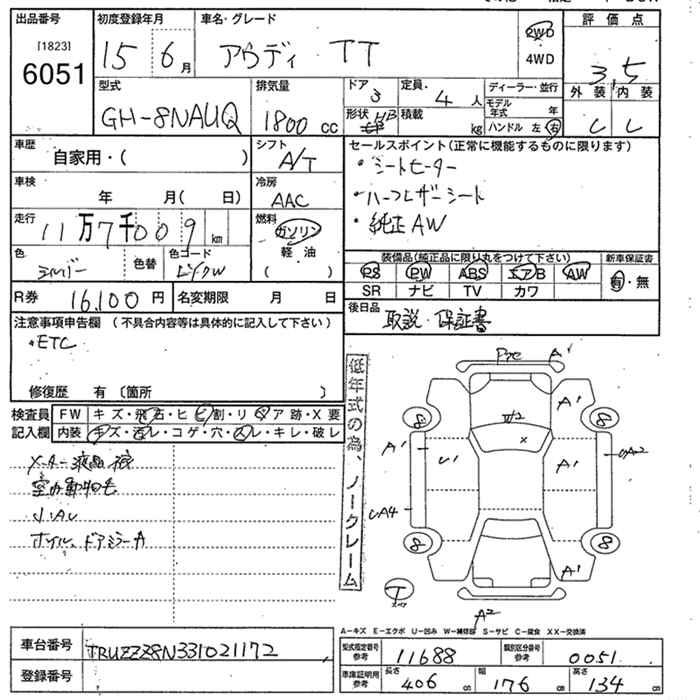 出品番号 初度登録年月 車名・グレード 評価点
[1823]
6051
15 6月 アウディ TT
2WD
4WD
3.5
型式 排気量 ドア 定員 ディーラー・並行 外装 内装
GH-8NAUQ 1800cc 3 4人
モデル年式 年
形状 HB 積載 kg ハンドル 左 右
C C
車歴 シフト セールスポイント(正常に機能するものに限ります)
自家用・( ) A/T
・シートヒーター
車検 冷房
年 月( 日) AAC
・ハーフレザーシート
走行 燃料
11万7千009km ガソリン
・純正AW
軽油
( )
色 シルバー 色替 色コード
装備品(純正品に限り丸をつけて下さい) 新車保証書
PS PW ABS エアB AW 有・無
SR ナビ TV カワ
R券 16,100円 名変期限 月 日
後日品 取説・保証書
注意事項申告欄 (不具合内容等は具体的に記入して下さい)
・ETC
修復歴 有〔箇所 〕
検査員 FW キズ・飛石・ヒビ割・リペア跡・X要
記入欄 内装 キズ・汚レ・コゲ・穴・スレ・キレ・破レ
低年式の為、ノークレーム
ホイル、ドアミラーA
A' A' A' A' A' U' A2
8 8 8 8
T
A−キズ E−エクボ U−凹み W−補修跡 S−サビ C−腐食 XX−交換済
車台番号 TRUZZZ8N331021172
登録番号
型式指定番号 参考 11688 類別区分番号 参考 0051
車庫証明用 参考 長さ 406cm 幅 176cm 高さ 134cm